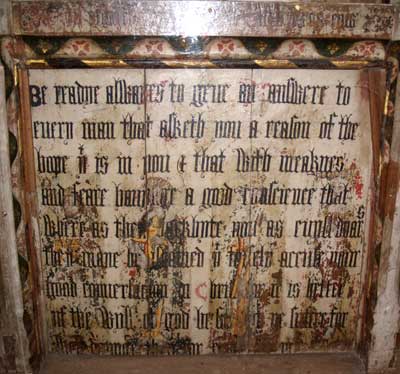 Be readye allwayes to geue an answere to
euery man that asketh you a reason of the
hope yt is in you & that with meaknes
and feare hauynge a good conscience that
where as they backbyte you as euyll doars
they maye be ashamed yt falsely accuse your
good conuersacion in Christ for it is better
if the will of god be so ye suffre for